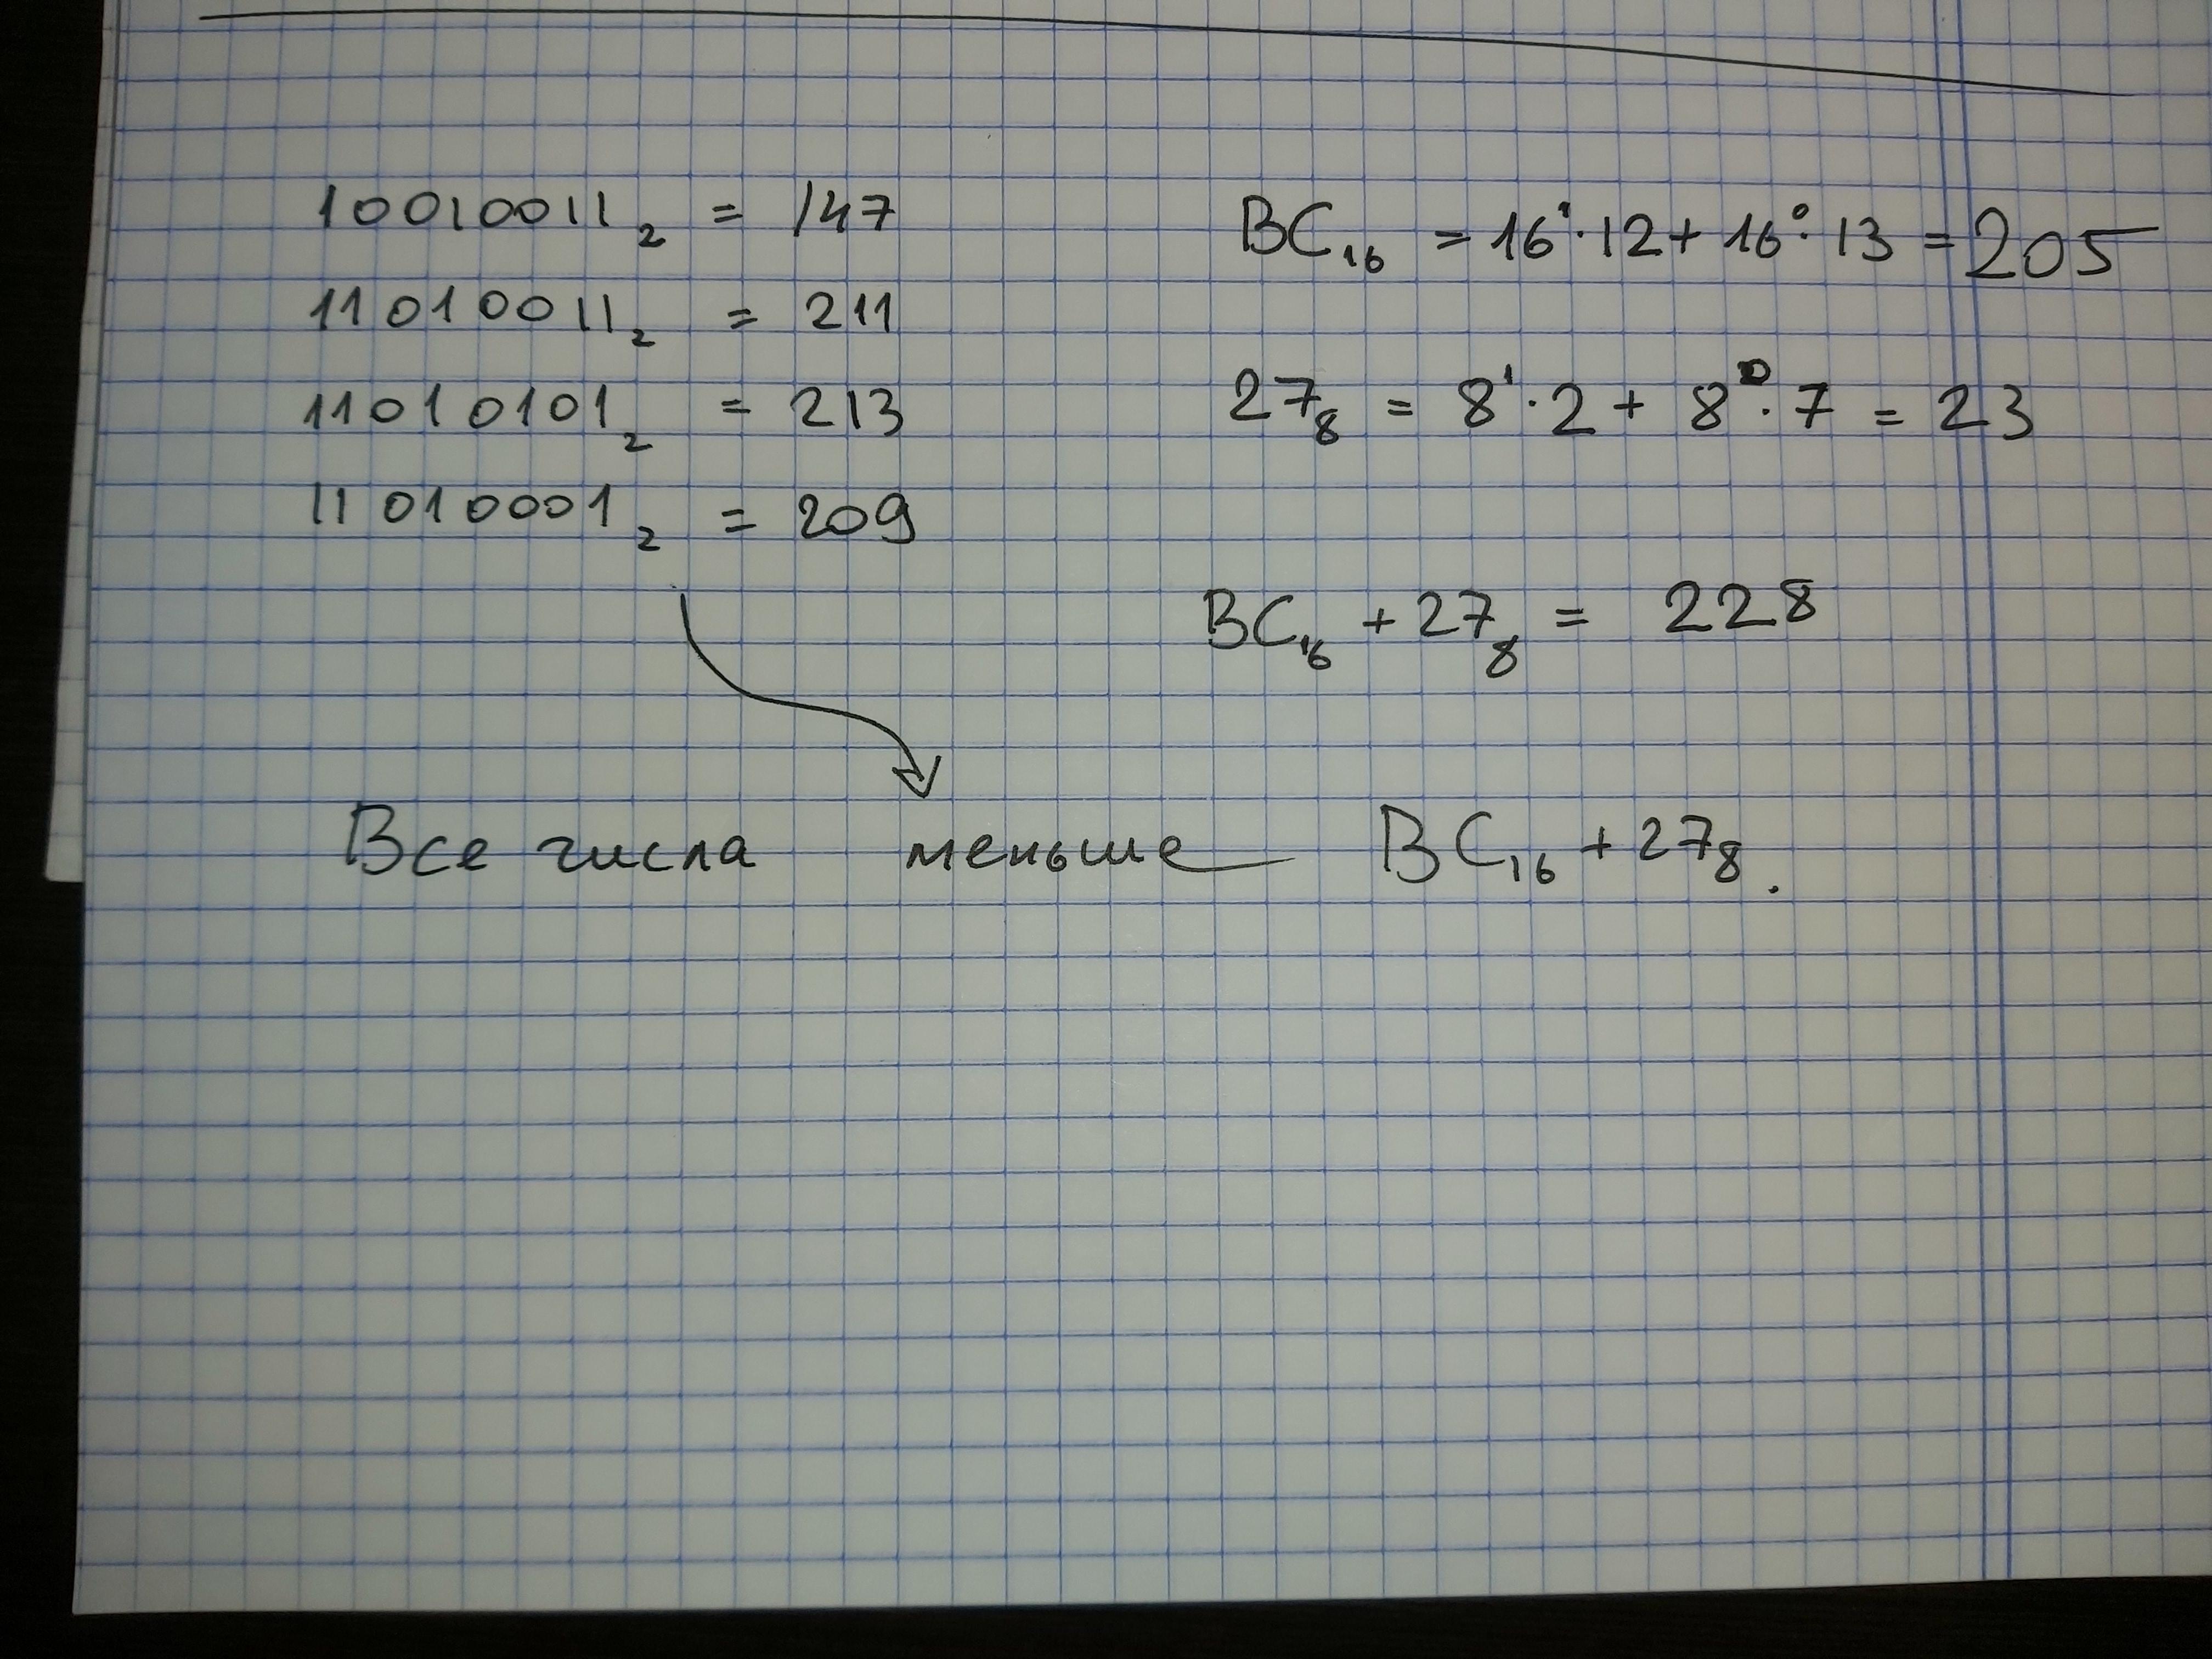 10010011₂ = 147
11010011₂ = 211
11010101₂ = 213
11010001₂ = 209
BC₁₆ = 16¹·12 + 16⁰·13 = 205
27₈ = 8¹·2 + 8⁰·7 = 23
BC₁₆ + 27₈ = 228
Все числа меньше BC₁₆ + 27₈.